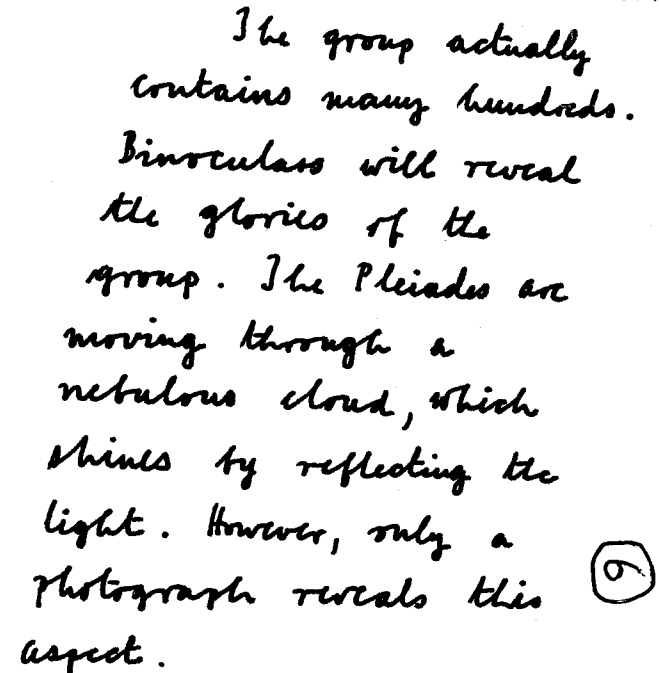 The group actually
contains many hundreds.
Binoculars will reveal
the glories of the
group. The Pleiades are
moving through a
nebulous cloud, which
shines by reflecting the
light. However, only a
photograph reveals this
aspect.
6